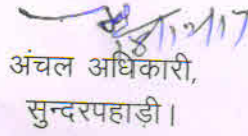 अंचल अधिकारी,
सुन्दरपहाड़ी।